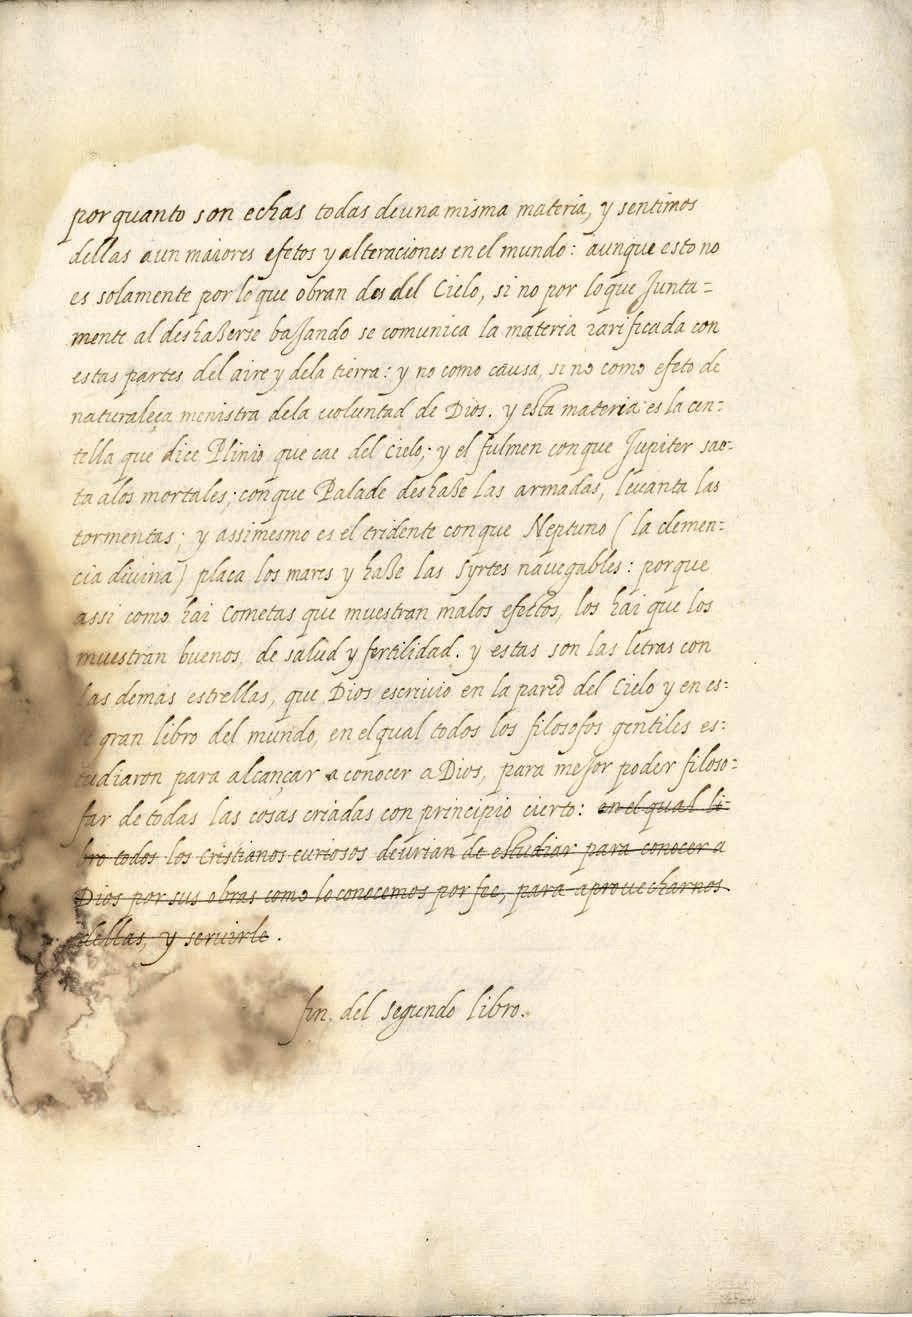 por quanto son echas todas de una misma materia, y sentimos
dellas aun maiores efetos y alteraciones en el mundo: aunque esto no
es solamente por lo que obran des del Cielo, si no por lo que Junta=
mente al deshaßerse baJando se comunica la materia rarificada con
estas partes del aire y dela tierra: y no como causa, si no como efeto de
naturaleça menistra dela voluntad de Dios. y esta materia es la cen=
tella que dice Plinio que cae del Cielo; y el fulmen con que Jupiter sae=
ta alos mortales; con que Palade deshaße las armadas, levanta las
tormentas; y assimesmo es el tridente con que Neptuno (la clemen=
cia divina) placa los mares y haße las Syrtes navegables: porque
assi como hai Cometas que muestran malos efectos, los hai que los
muestran buenos, de salud y fertilidad. y estas son las letras con
las demas estrellas, que Dios escrivio en la pared del Cielo y en es=
te gran libro del mundo, en el qual todos los filosofos gentiles es=
tudiaron para alcançar a conocer a Dios, para meJor poder filoso=
far de todas las cosas criadas con principio cierto: en el qual li=
bro todos los Cristianos curiosos devrian de estudiar para conocer a
Dios por sus obras como lo conocemos por fee, para aprovecharnos
dellas, y servirle.
fin del segundo libro.